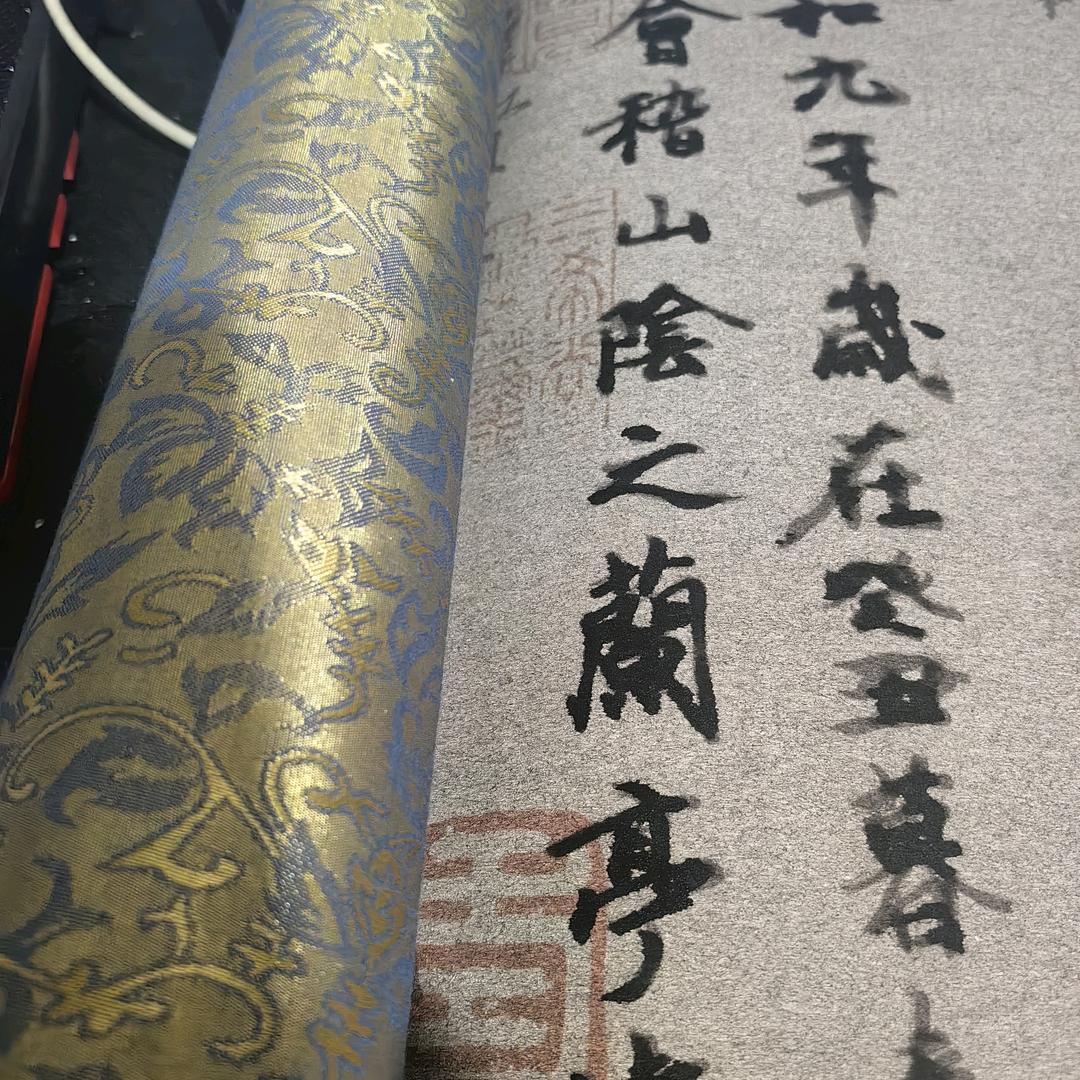 和九年歲在癸丑暮
會稽山陰之蘭亭